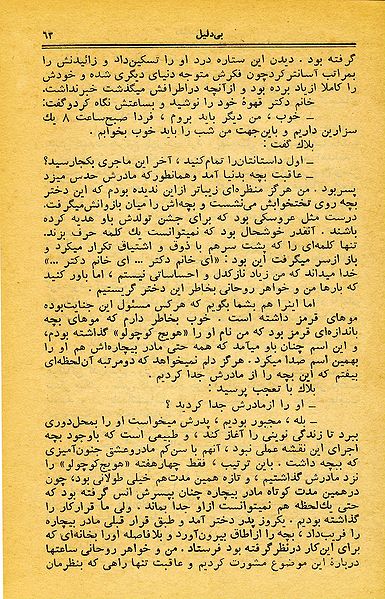 بی‌دلیل
۶۳
گرفته بود . دیدن این ستاره درد او را تسکین‌داد و زائیدنش را
بمراتب آسانترکرد‌چون فکرش متوجه دنیای دیگری شده و خودش
را کاملا ازیاد برده بود و ازآنچه دراطرافش میگذشت خبرنداشت.
خانم دکتر قهوهٔ خود را نوشید و بساعتش نگاه کردوگفت:
ــ خوب ، من دیگر باید بروم ، فردا صبح‌ساعت ۸ یك
سزارین داریم و باین‌جهت من شب را باید خوب بخوابم .
بلاك گفت :
ــ اول داستانتان‌را تمام‌کنید ، آخر این ماجری بکجارسید؟
ــ عاقبت بچه بدنیا آمد وهمانطورکه مادرش حدس میزد
پسربود . من هرگز منظره‌ای زیباتر ازاین ندیده بودم که این دختر
بچه روی تختخوابش می‌نشست و بچه‌اش را میان بازوانش‌میگرفت.
درست مثل عروسکی بود که برای جشن تولدش باو هدیه کرده
باشند . آنقدر خوشحال بود که نمیتوانست یك کلمه حرف بزند.
تنها کلمه‌ای را که پشت سرهم با ذوق و اشتیاق تکرار میکرد و
باز ازسر میگرفت این بود : «ای خانم دکتر ... ای خانم دکتر ...»
خدا میداند که من زیاد نازکدل و احساساتی نیستم ، اما باور کنید
که بارها من و خواهر روحانی بخاطر این دختر گریستیم .
اما اینرا هم بشما بگویم که هرکس مسئول این جنایت‌بوده
موهای قرمز داشته است . خوب بخاطر دارم که موهای بچه
باندازه‌ای قرمز بود که من نام او را «هویج کوچولو» گذاشته بودم،
و این اسم چنان باو میآمد که همه حتی مادر بیچاره‌اش هم او را
بهمین اسم صدا میکرد . هرگز دلم نمیخواهد که دومرتبه آن‌لحظه‌ای
بیفتم که این بچه را از مادرش جدا کردیم .
بلاك با تعجب پرسید :
ــ او را ازمادرش جدا کردید ؟
ــ بله ، مجبور بودیم ، پدرش میخواست او را بمحل‌دوری
ببرد تا زندگی نوینی را آغاز کند ، و طبیعی است که باوجود بچه
اجرای این نقشه عملی نبود ، آنهم با سن‌کم مادروعشق جنون‌آمیزی
که ببچه داشت . باین ترتیب ، فقط چهارهفته «هویج‌کوچولو» را
نزد مادرش گذاشتیم ، و تازه همین مدت‌هم خیلی طولانی بود، چون
درهمین مدت کوتاه مادر بیچاره چنان بپسرش انس گرفته بود که
حتی یك‌لحظه هم نمیتوانست ازاو جدا بماند . ولی ما قرارکار را
گذاشته بودیم . یکروز پدر دختر آمد و طبق قرار قبلی مادر بیچاره
را فریب‌داد ، بچه را ازاطاق بیرون‌آورد و بلافاصله اورا بخانه‌ای که
برای این‌کار درنظرگرفته بود فرستاد . من و خواهر روحانی ساعتها
دربارهٔ این موضوع مشورت کردیم و عاقبت تنها راهی که بنظرمان